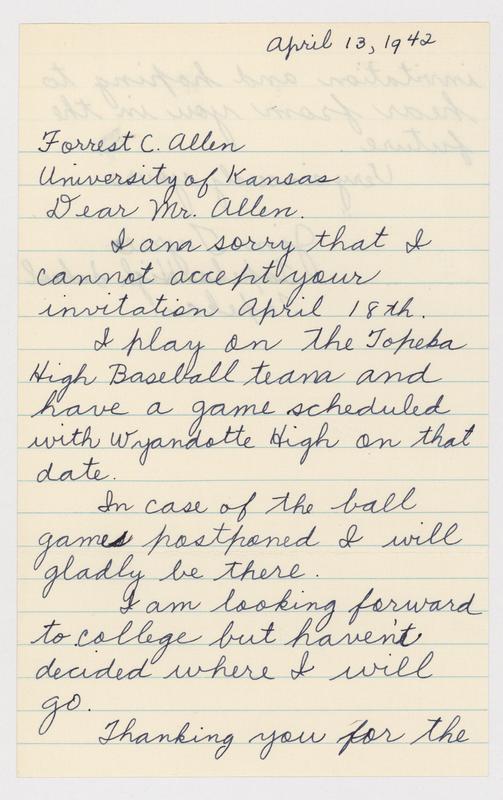 April 13, 1942
Forrest C. Allen
University of Kansas
Dear Mr. Allen.
I am sorry that I
cannot accept your
invitation April 18th.
I play on the Topeka
High Baseball team and
have a game scheduled
with Wyandotte High on that
date.
In case of the ball
games postponed I will
gladly be there.
I am looking forward
to college but haven't
decided where I will
go.
Thanking you for the